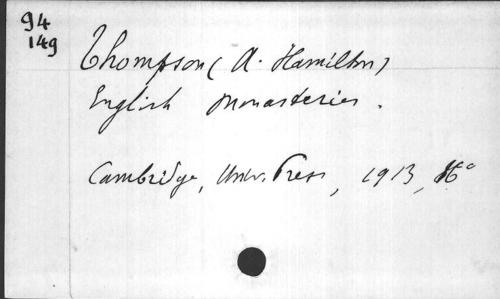 94
149
Thompson (A. Hamilton)
English Monasteries.
Cambridge, Univ. Press, 1913, 16°